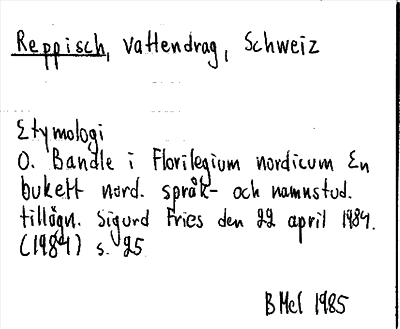 Reppisch, vattendrag, Schweiz
Etymologi
O. Bandle i Florilegium nordicum En
bukett nord. språk- och namnstud.
tillägn. Sigurd Fries den 22 april 1984.
(1984) s. 25
BMel 1985